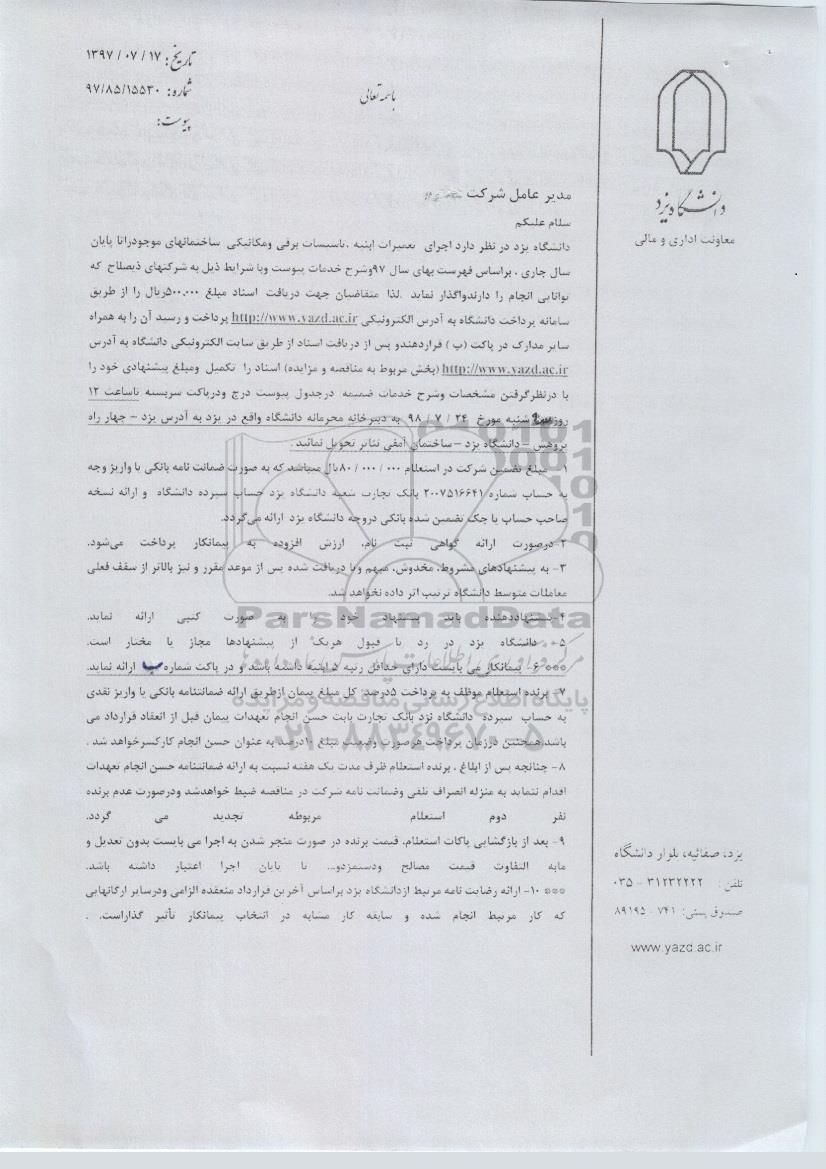 تاریخ: ۱۳۹۷/۰۷/۱۷
شماره: ۹۷/۸۵/۱۵۵۳۰
پیوست:
باسمه تعالی
دانشگاه یزد
معاونت اداری و مالی
مدیر عامل شرکت
سلام علیکم
دانشگاه یزد در نظر دارد اجرای تعمیرات ابنیه ،تاسیسات برقی ومکانیکی ساختمانهای موجودراتا پایان
سال جاری ، براساس فهرست بهای سال ۹۷وشرح خدمات پیوست وبا شرایط ذیل به شرکتهای ذیصلاح که
توانایی انجام را دارندواگذار نماید .لذا متقاضیان جهت دریافت اسناد مبلغ ۵۰۰.۰۰۰ریال را از طریق
سامانه پرداخت دانشگاه به آدرس الکترونیکی http://www.yazd.ac.ir پرداخت و رسید آن را به همراه
سایر مدارک در پاکت (پ ) قراردهندو پس از دریافت اسناد از طریق سایت الکترونیکی دانشگاه به آدرس
http://www.yazd.ac.ir (بخش مربوط به مناقصه و مزایده) اسناد را تکمیل ومبلغ پیشنهادی خود را
با درنظرگرفتن مشخصات وشرح خدمات ضمیمه درجدول پیوست درج ودرپاکت سربسته تاساعت ۱۲
روز شنبه مورخ ۲۴ / ۷ / ۹۸ به دبیرخانه محرمانه دانشگاه واقع در یزد به آدرس یزد – چهار راه
پژوهش – دانشگاه یزد – ساختمان آمفی تئاتر تحویل نمائید .
۱- مبلغ تضمین شرکت در استعلام ۸۰/۰۰۰/۰۰۰ریال میباشد که به صورت ضمانت نامه بانکی یا واریز وجه
به حساب شماره ۲۰۰۷۵۱۶۶۴۱ بانک تجارت شعبه دانشگاه یزد حساب سپرده دانشگاه و ارائه نسخه
صاحب حساب یا چک تضمین شده بانکی دروجه دانشگاه یزد ارائه می‌گردد.
۲-درصورت ارائه گواهی ثبت نام، ارزش افزوده به پیمانکار پرداخت می‌شود.
۳- به پیشنهادهای مشروط، مخدوش، مبهم ویا دریافت شده پس از موعد مقرر و نیز بالاتر از سقف فعلی
معاملات متوسط دانشگاه ترتیب اثر داده نخواهد شد.
۴-پیشنهاددهنده باید پیشنهاد خود را به صورت کتبی ارائه نماید.
۵- دانشگاه یزد در رد یا قبول هریک از پیشنهادها مجاز یا مختار است.
*** ۶- پیمانکار می بایست دارای حداقل رتبه ۵ ابنیه داشته باشد و در پاکت شماره ب ارائه نماید.
۷- برنده استعلام موظف به پرداخت ۵درصد کل مبلغ پیمان ازطریق ارائه ضمانتنامه بانکی یا واریز نقدی
به حساب سپرده دانشگاه نزد بانک تجارت بابت حسن انجام تعهدات پیمان قبل از انعقاد قرارداد می
باشد.همچنین درزمان پرداخت هرصورت وضعیت مبلغ ۱۰درصد به عنوان حسن انجام کارکسرخواهد شد .
۸- چنانچه پس از ابلاغ ، برنده استعلام ظرف مدت یک هفته نسبت به ارائه ضمانتنامه حسن انجام تعهدات
اقدام ننماید به منزله انصراف تلقی وضمانت نامه شرکت در مناقصه ضبط خواهدشد ودرصورت عدم برنده
نفر دوم استعلام مربوطه تجدید می گردد.
۹- بعد از بازگشایی پاکات استعلام، قیمت برنده در صورت منجر شدن به اجرا می بایست بدون تعدیل و
مابه التفاوت قیمت مصالح ودستمزدو... تا پایان اجرا اعتبار داشته باشد.
*** ۱۰- ارائه رضایت نامه مرتبط ازدانشگاه یزد براساس آخرین قرارداد منعقده الزامی ودرسایر ارگانهایی
که کار مرتبط انجام شده و سابقه کار مشابه در انتخاب پیمانکار تأثیر گذاراست. .
یزد، صفائیه، بلوار دانشگاه
تلفن : ۳۱۲۳۲۲۲۲ - ۰۳۵
صندوق پستی: ۷۴۱ - ۸۹۱۹۵
www.yazd.ac.ir
ParsNamadData
پایگاه اطلاع رسانی مناقصه و مزایده
۰۲۱-۸۸۳۴۹۶۷۰-۵